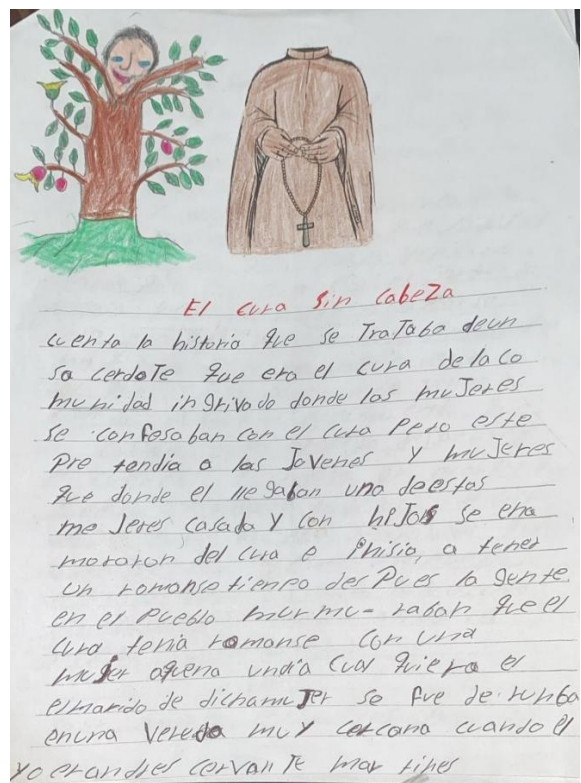 El cura sin cabeza
cuenta la historia que se TraTaba deun
sa cerdoTe que era el cura de la co
munidad in grivado donde las muJeres
se confesaban con el cura Pero este
Pre tendia a las Jovenes Y muJeres
que donde el lle gaban uno deestos
me Jeres casada Y con hiJos se ena
moraron del cura e Phisio, a tener
un romanse tienpo des Pues la gente
en el Pueblo murmu-raban que el
cura tenia romanse con una
muJer agena undia cual quiera el
elmarido de dichamuJer se fue de runba
enuna Vereda muY cercana cuando el
yo erandres cervanTe mar tines